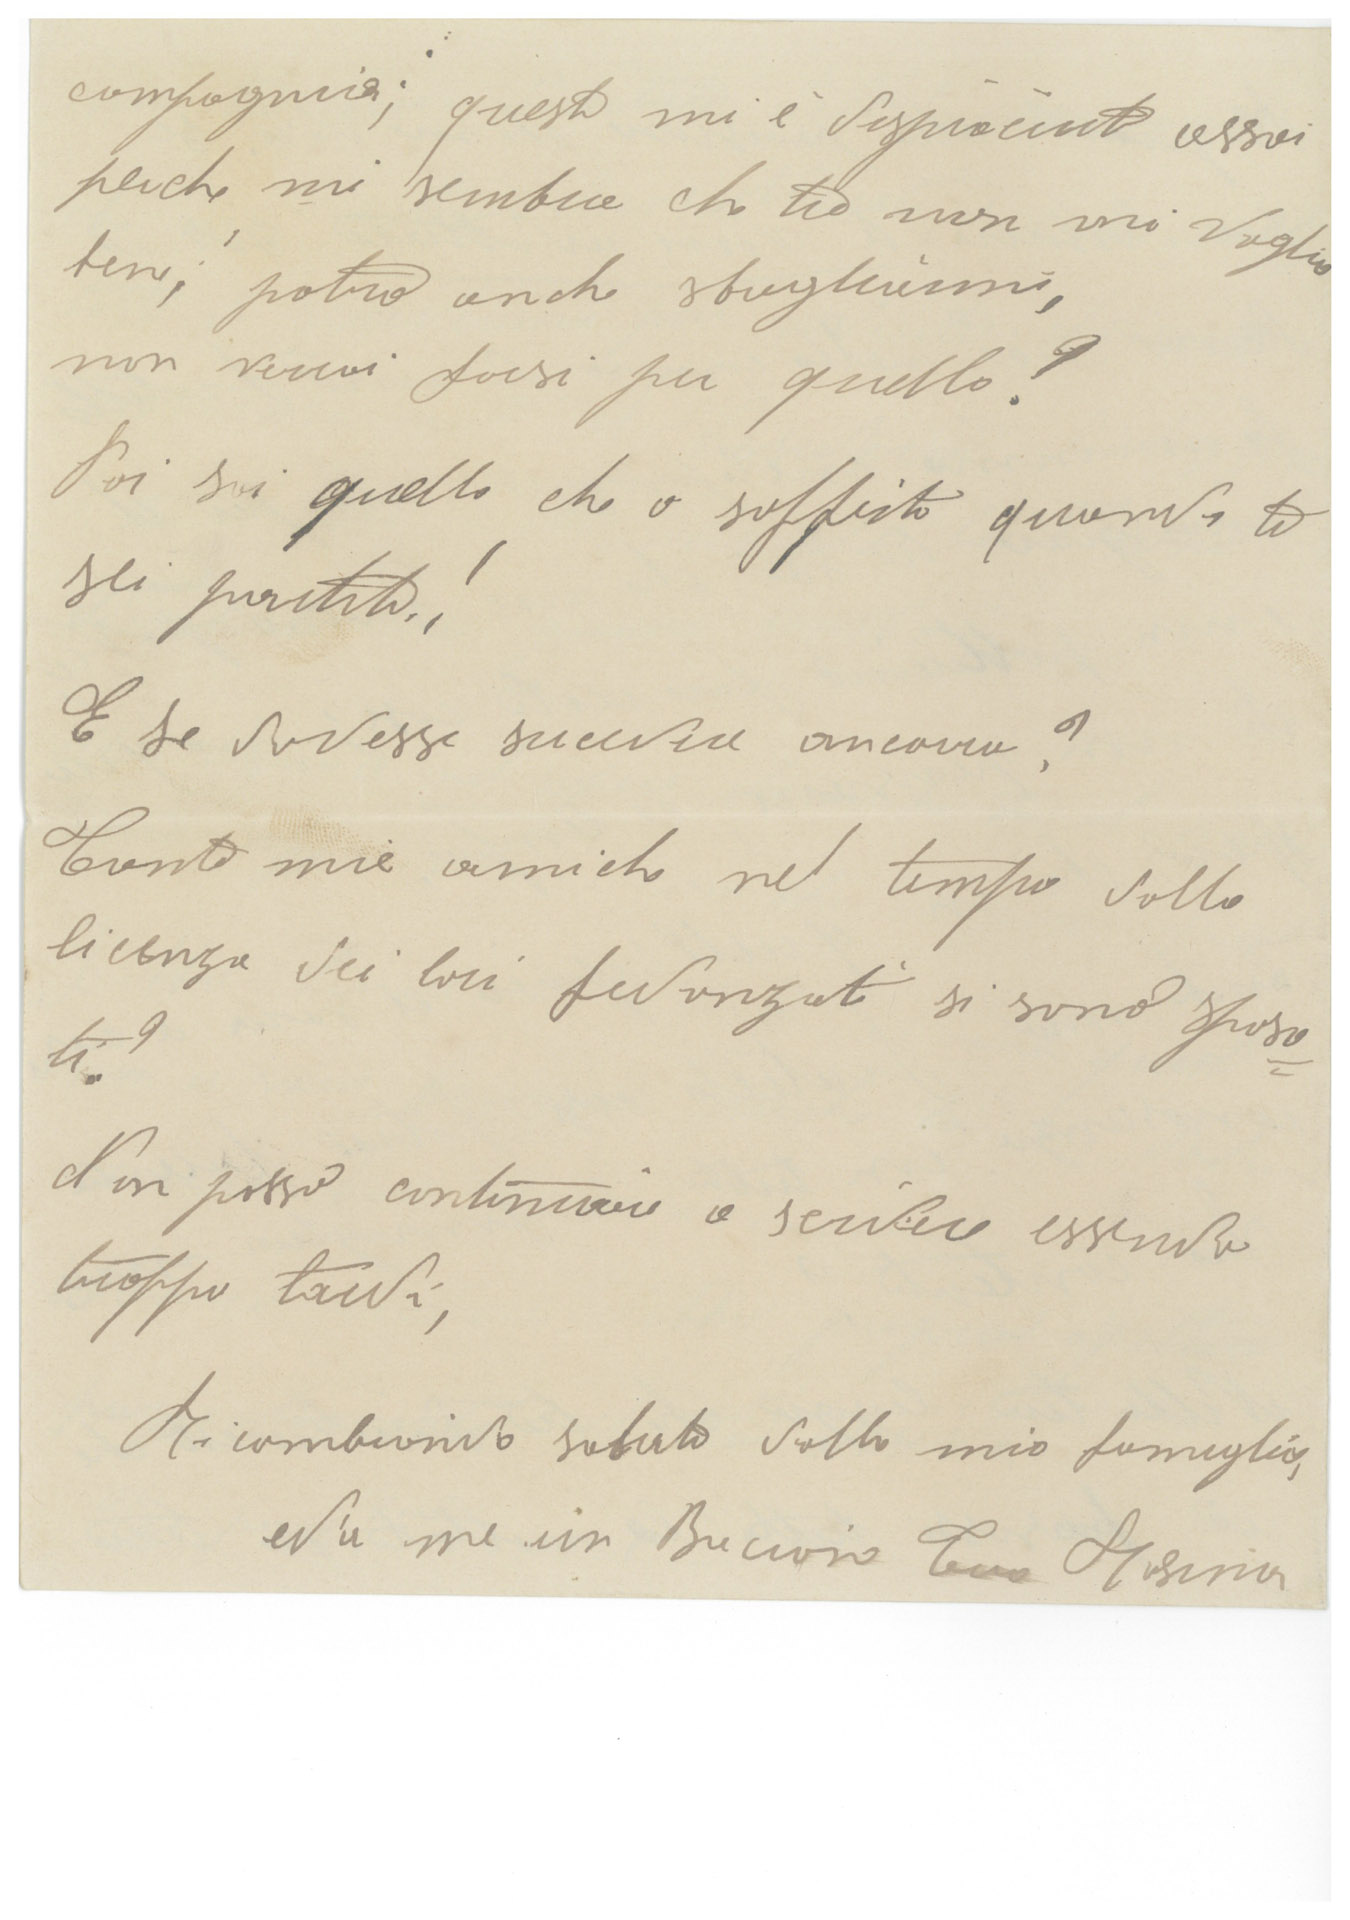 compagnia; questo mi è dispiaciuto assai
perche mi sembra che tu non mi voglia
bene; potrò anche sbagliarmi,
non verrai forsi per quello?
Poi sai quello che o sofferto quando tu
sei partito.!
E se dovesse succedere ancora?
Tante mie amiche nel tempo dalla
licenza dei lori fidanzati si sono sposa=
ti?
Non posso continuare a scrivere essendo
troppo tardi,
Ricambiando saluto dalla mia famiglia,
e da me un Bacione Tua Rosina